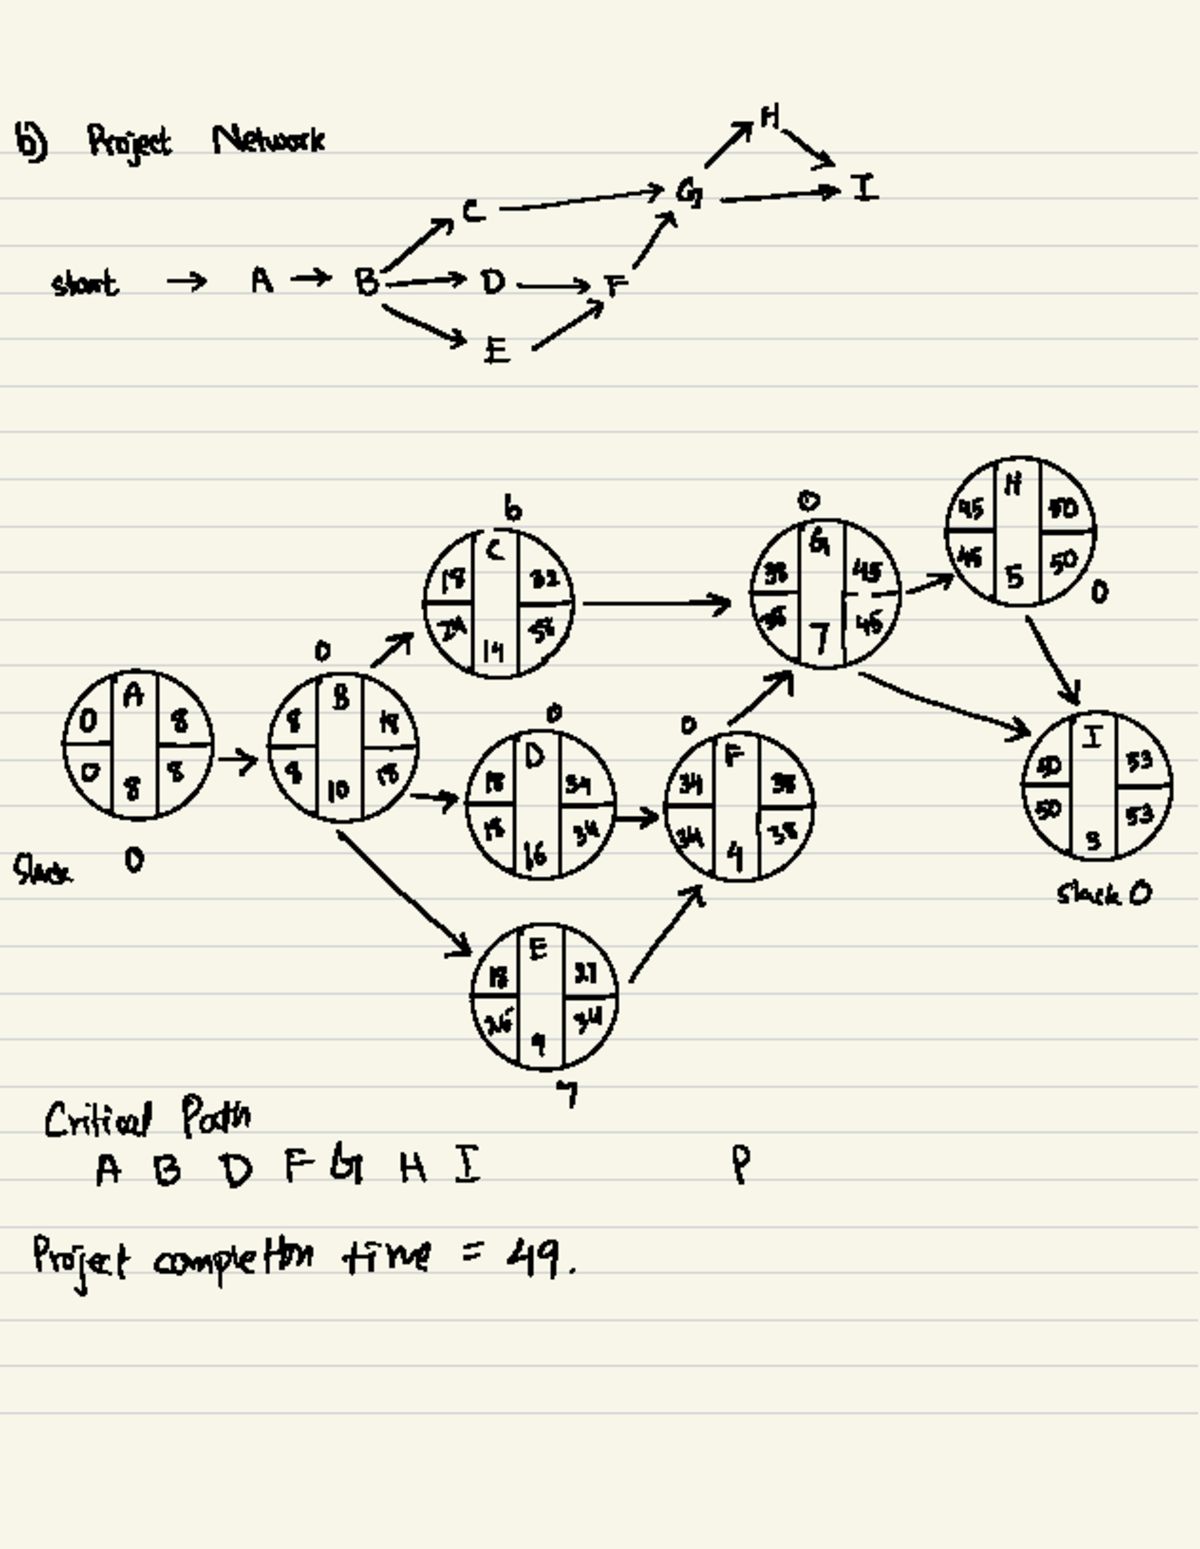 b) Project Network
H
G I
C
start → A → B D F
E
6 0 H
C G 45 50
18 32 38 45 45 50
24 38 38 45 5 0
14 7
0 0 0
A B D F I
0 8 8 18 18 34 34 38 50 53
0 8 8 18 18 34 34 38 50 53
8 10 16 4 3
Slack 0 slack 0
E
18 27
25 34
9
7
Critical Path
A B D F G H I P
Project completion time = 49.